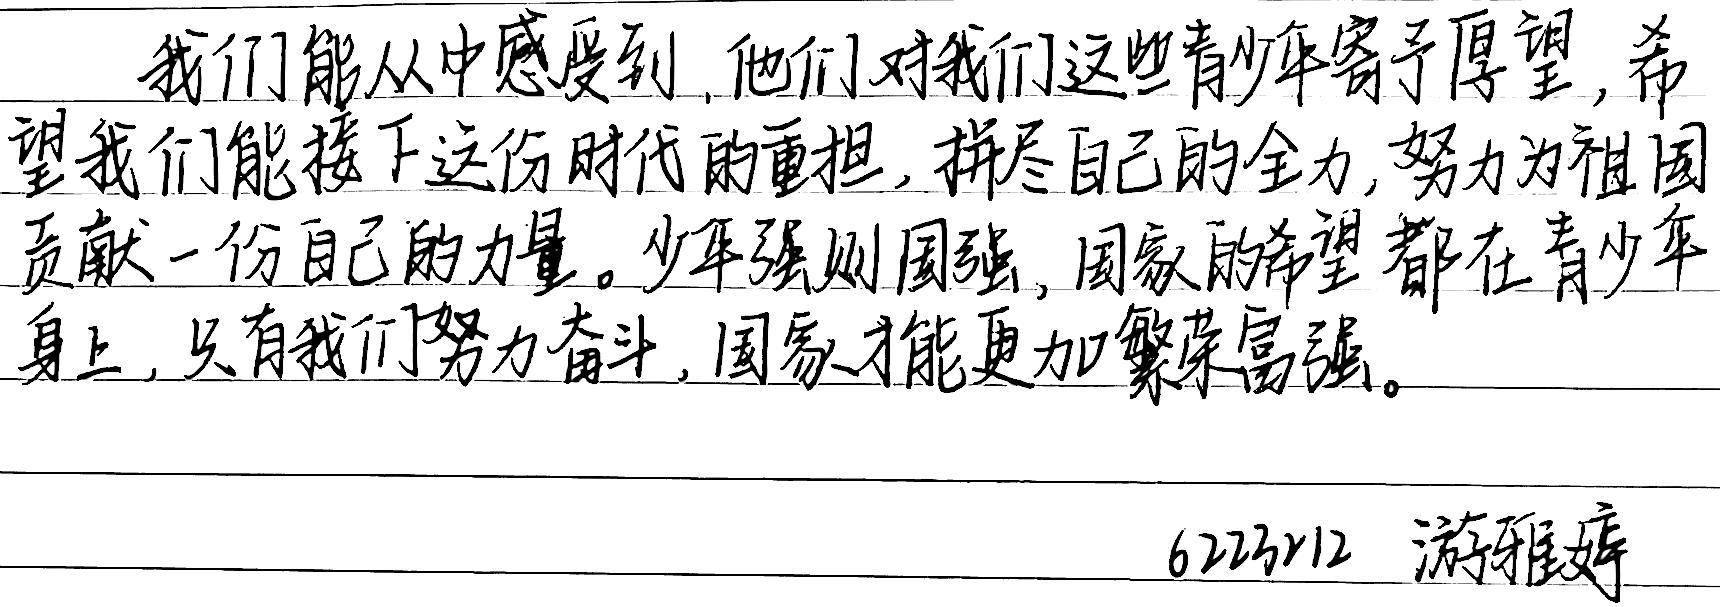 我们能从中感受到,他们对我们这些青少年寄予厚望,希
望我们能接下这份时代的重担,拼尽自己的全力,努力为祖国
贡献一份自己的力量。少年强则国强,国家的希望都在青少年
身上,只有我们努力奋斗,国家才能更加繁荣富强。
6223212 游雅婷